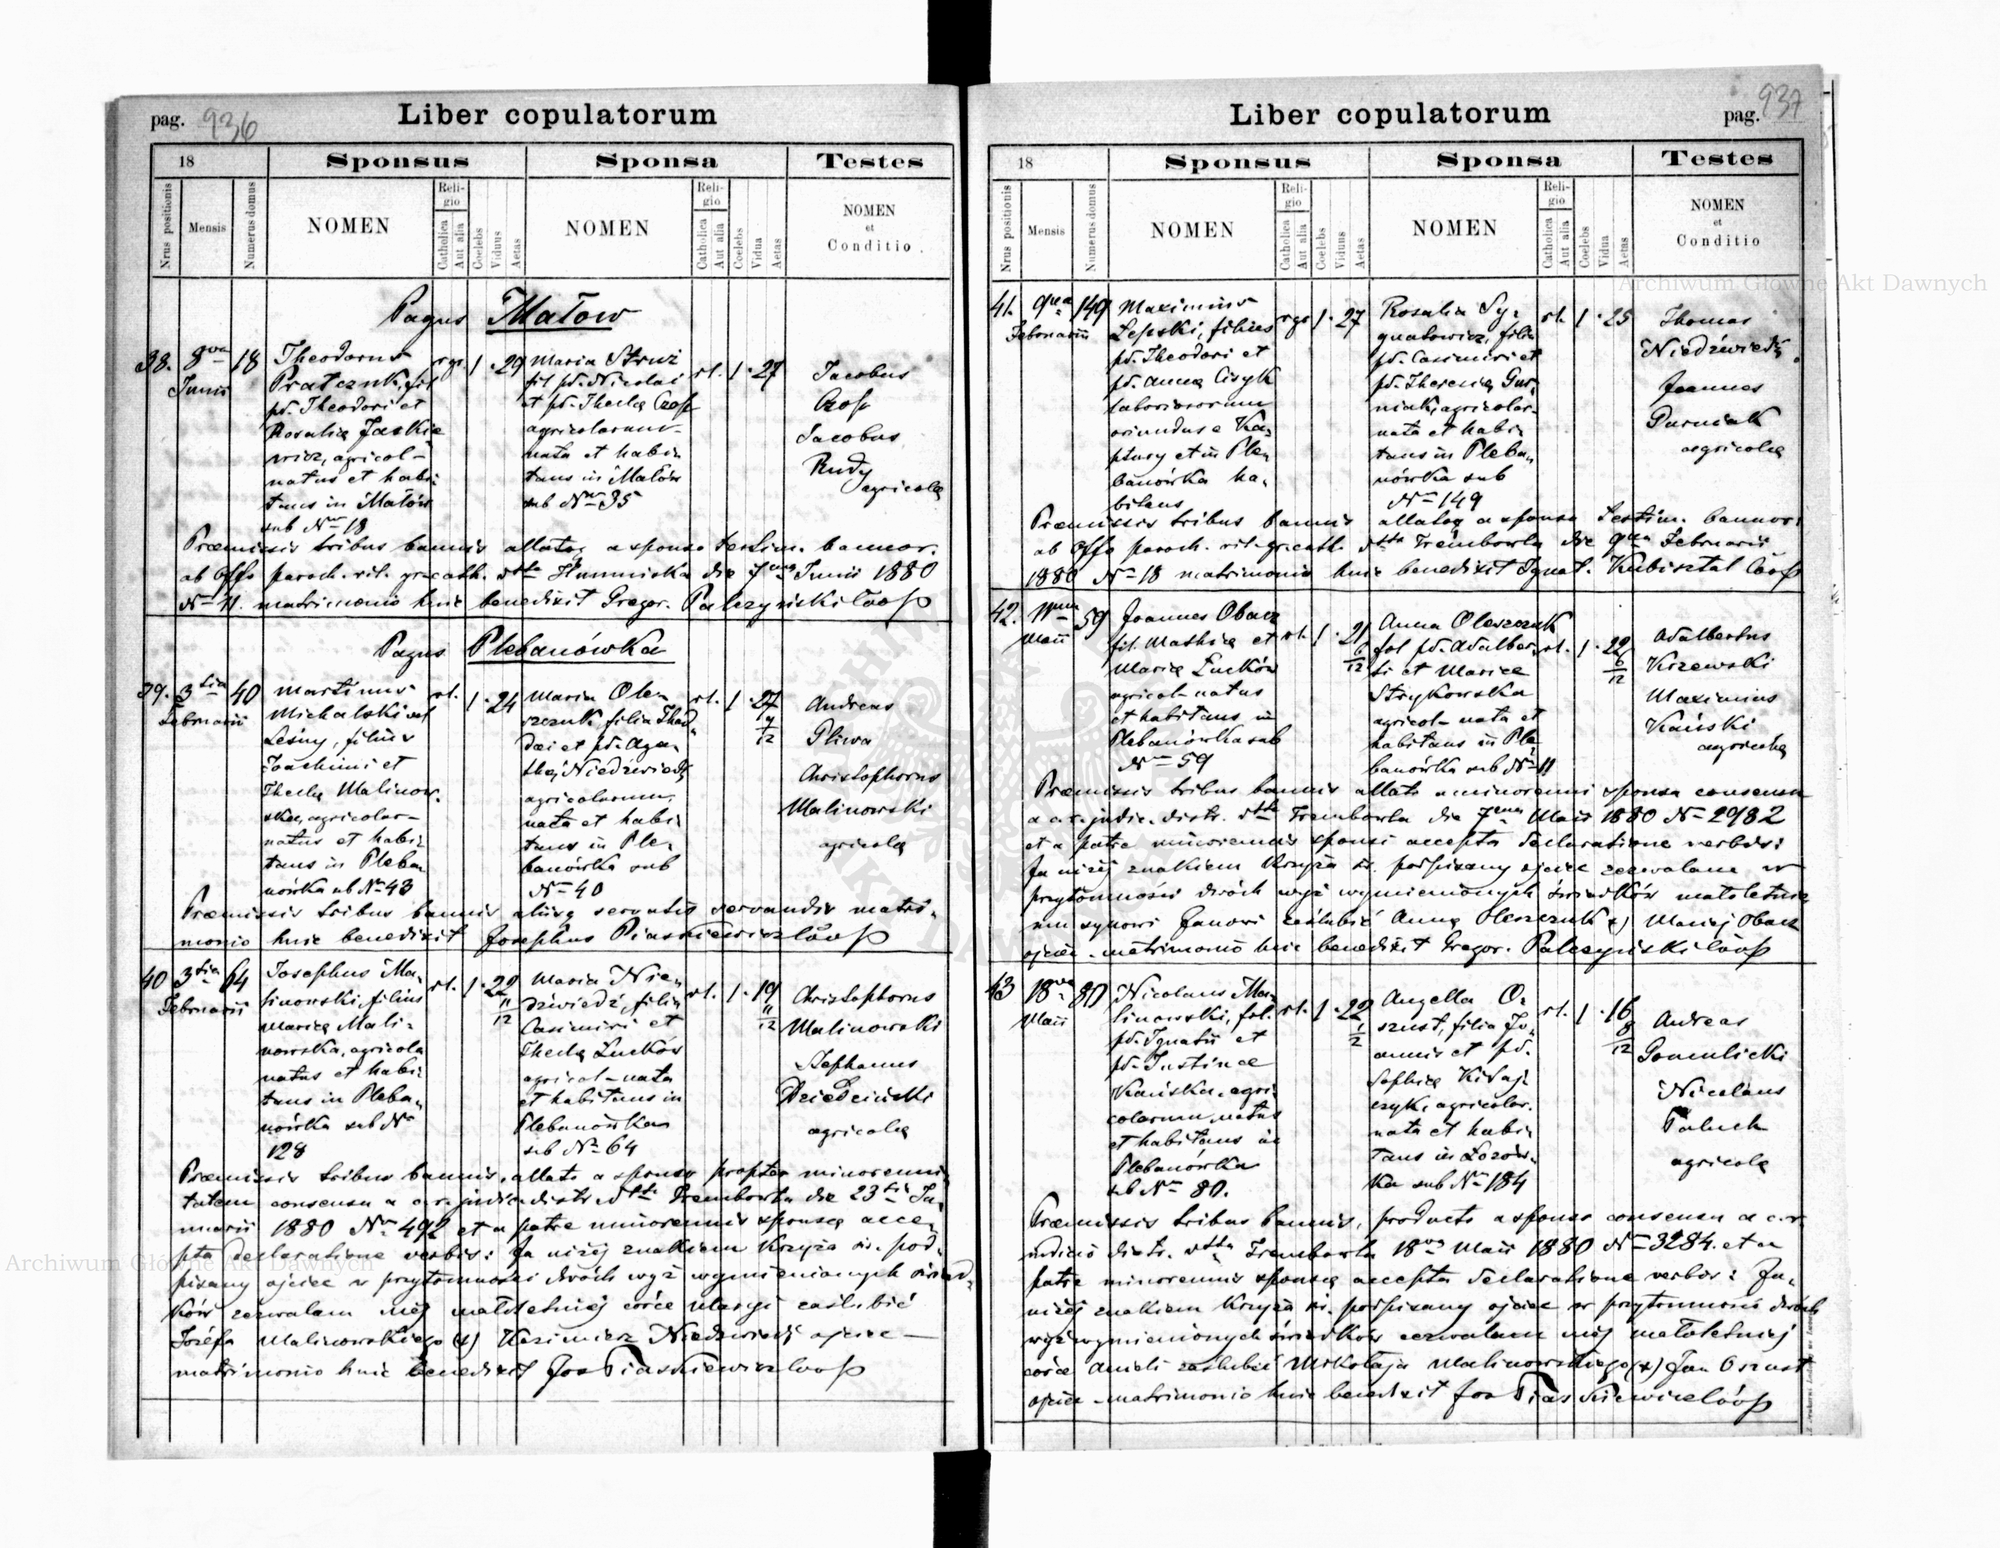 pag. 936
Liber copulatorum
18
Sponsus
Sponsa
Testes
Nrus positionis
Mensis
Numerus domus
NOMEN
Religio
Catholica
Aut alia
Coelebs
Viduus
Aetas
NOMEN
Religio
Catholica
Aut alia
Coelebs
Vidua
Aetas
NOMEN
et
Conditio
Pagus Małow
38. 8va Junii 18
Theodorus
Pratczuk, fil
pd. Theodori et
Rosaliæ Jaskie
wicz, agricol-
natus et habi-
tans in Małów
sub Nro 18
rgr. 1 29
Maria Struż
fil pd. Nicolai
et pd. Theclæ Czop
agricolarum
nata et habi-
tans in Małów
sub Nro 35
rl. 1 27
Jacobus
Czop
Jacobus
Rudy
agricolæ
Præmissis tribus bannis allatoq a sponso testim. bannor.
ab Offo paroch. rit. gr. cath. dtto Humniska die 7ma Junii 1880
Nro 11. matrimonio huic benedixit Gregor. Palczyński
Pagus Plebanówka
39. 3tia Februarii 40
Martinus
Michalski vel
Leśny, filius
Joachimi et
Theclæ Malinow-
ska, agricolar-
natus et habi-
tans in Pleba-
nówka sub Nro 43
rl. 1 24
Maria Ole-
szczuk filia Thad-
dæi et pd. Aga-
thæ Niedźwiedź
agricolarum,
nata et habi-
tans in Ple-
banówka sub
Nro 40
rl. 1 27 7/12
Andreas
Pliwa
Christophorus
Malinowski
agricolæ
Præmissis tribus bannis aliisq servatis servandis matri-
monio huic benedixit Josephus Piaskiewicz
40 3tia Februarii 64
Josephus Ma-
linowski, filius
Mariæ Mali-
nowska, agricola
natus et habi-
tans in Pleba-
nówka sub Nro
128
rl. 1 22 11/12
Maria Nie-
dźwiedź, filia
Casimiri et
Theclæ Luków
agricol- nata
et habitans in
Plebanówka
sub Nro 64
rl. 1 19 11/12
Christophorus
Malinowski
Stephanus
Dziedziński
agricolæ
Præmissis tribus bannis, allato a sponso propter minorenni-
tatem consensu a c. r. judic. distr. dtto Trembowla die 23tia Ja-
nuarii 1880 Nro 492 et a patre minorennis sponsæ acce-
pta declaratione verbis: Ja niżej znakiem krzyża ś. pod-
pisany ojciec w przytomności dwóch wyż wymienionych świad-
ków zezwalam mej małoletniej córce Maryi zaślubić
Józefa Malinowskiego (x) Kazimierz Niedźwiedź ojciec -
matrimonio huic benedixit Jos Piaskiewicz
Liber copulatorum
pag. 937
18
Sponsus
Sponsa
Testes
Nrus positionis
Mensis
Numerus domus
NOMEN
Religio
Catholica
Aut alia
Coelebs
Viduus
Aetas
NOMEN
Religio
Catholica
Aut alia
Coelebs
Vidua
Aetas
NOMEN
et
Conditio
41. 9na Februarii 149
Maximus
Lepski, filius
pd. Theodori et
pd. Anna Cisyk
laboriosorum
oriundus e Ka-
ptury et in Ple-
banówka ha-
bitans
rgr 1 27
Rosalia Sy-
gnatowicz, filia
pd. Casimiri et
pd. Theresiæ Gur-
niak, agricolar-
nata et habi-
tans in Pleba-
nówka sub
Nro 149
rl. 1 25
Thomas
Niedźwiedź
Joannes
Purniak
agricolæ
Præmissis tribus bannis allatoq a sponso testim. bannor:
ab Offo paroch. rit. gr. cath. dtto Trembowla die 9na Februarii
1880 Nro 18 matrimonio huic benedixit Ignat. Kubisztal
42. 11ma Maii 59
Joannes Obacz
fil. Mathiæ et
Mariæ Luków
agricol- natus
et habitans in
Plebanówka sub
Nro 59
rl. 1 21 6/12
Anna Oleszczuk
fol pd. Adalber-
ti et Mariæ
Strykowska
agricol- nata et
habitans in Ple-
banówka sub Nro 11
rl. 1 22 6/12
Adalbertus
Krzewski
Maximus
Kański
agricolæ
Præmissis tribus bannis allato a minorenni sponso consensu
a c. r. judic. distr. dtto Trembowla die 7ma Maii 1880 Nro 2982
et a patre minorennis sponsi accepta declaratione verbis:
Ja niżej znakiem krzyża ś. podpisany ojciec zezwalam w
przytomności dwóch wyż wymienionych świadków małoletnie-
mu synowi Janowi zaślubić Annę Oleszczuk (x) Maciej Obacz
ojciec - matrimonio huic benedixit Gregor. Palczyński
43 18va Maii 80
Nicolaus Ma-
linowski, fil.
pd. Ignatii et
pd. Justinæ
Kańska, agri-
colarum, natus
et habitans in
Plebanówka
sub Nro 80.
rl. 1 22 1/2
Angella O-
szust, filia Jo-
annis et pd.
Sophiæ Kidaj-
czyk, agricolar.
nata et habi-
tans in Łozów-
ka sub Nro 184
rl. 1 16 8/12
Andreas
Gomulicki
Nicolaus
Paluch
agricolæ
Præmissis tribus bannis, producto a sponso consensu a c. r.
judicio distr. dtto Trembowla 18va Maii 1880 Nro 3284. et a
patre minorennis sponsæ accepta declaratione verbis: Ja-
niżej znakiem krzyża ś. podpisany ojciec w przytomności dwóch
wyż wymienionych świadków zezwalam mej małoletniej
córce Anieli zaślubić Mikołaja Malinowskiego (x) Jan Oszust
ojciec - matrimonio huic benedixit Jos Piaskiewicz
Archiwum Główne Akt Dawnych
Archiwum Główne Akt Dawnych